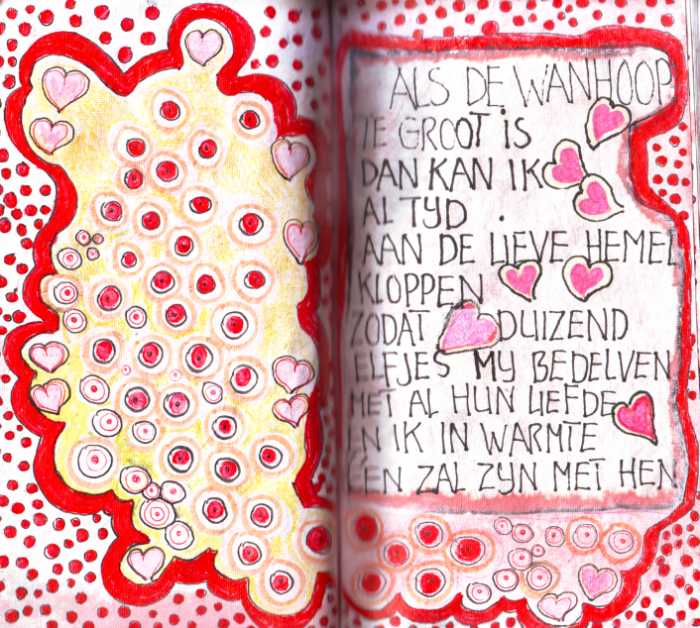 ALS DE WANHOOP
TE GROOT iS
DAN KAN IK
AL TYD .
AAN DE LIEVE HEMEL
KLOPPEN
ZODAT DUIZEND
ELFJES MY BEDELVEN
MET AL HUN LIEFDE
EN IK IN WARMTE
EEN ZAL ZYN MET HEN